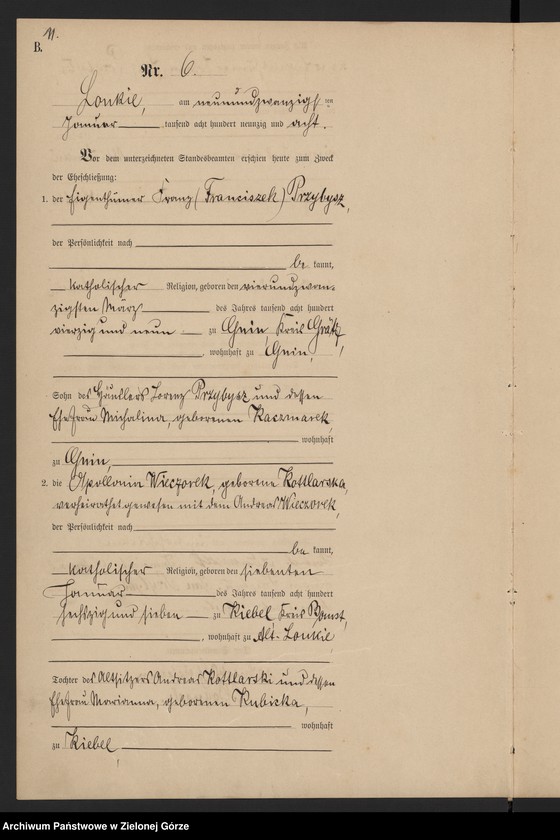 11.
B.
Nr. 6.
Lonkie, am neunundzwanzigsten
Januar tausend acht hundert neunzig und acht.
Vor dem unterzeichneten Standesbeamten erschien heute zum Zweck
der Eheschließung:
1. der Eigenthümer Franz (Franciszek) Przybysz,
der Persönlichkeit nach
be kannt,
katholischer Religion, geboren den vierundzwan-
zigsten März des Jahres tausend acht hundert
vierzig und neun zu Gnin, Kreis Grätz,
, wohnhaft zu Gnin,
Sohn des Häuslers Lorenz Przybysz und dessen
Ehefrau Michalina, geborenen Kaczmarek,
wohnhaft
zu Gnin,
2. die Apollonia Wieczorek, geborene Kottlarska,
verheirathet gewesen mit dem Andreas Wieczorek,
der Persönlichkeit nach
be kannt,
katholischer Religion, geboren den siebenten
Januar des Jahres tausend acht hundert
sechszig und sieben zu Kiebel, Kreis Bomst,
, wohnhaft zu Alt-Lonkie
Tochter des Altsitzers Andreas Kottlarski und dessen
Ehefrau Marianna, geborenen Kubicka,
wohnhaft
zu Kiebel
Archiwum Państwowe w Zielonej Górze